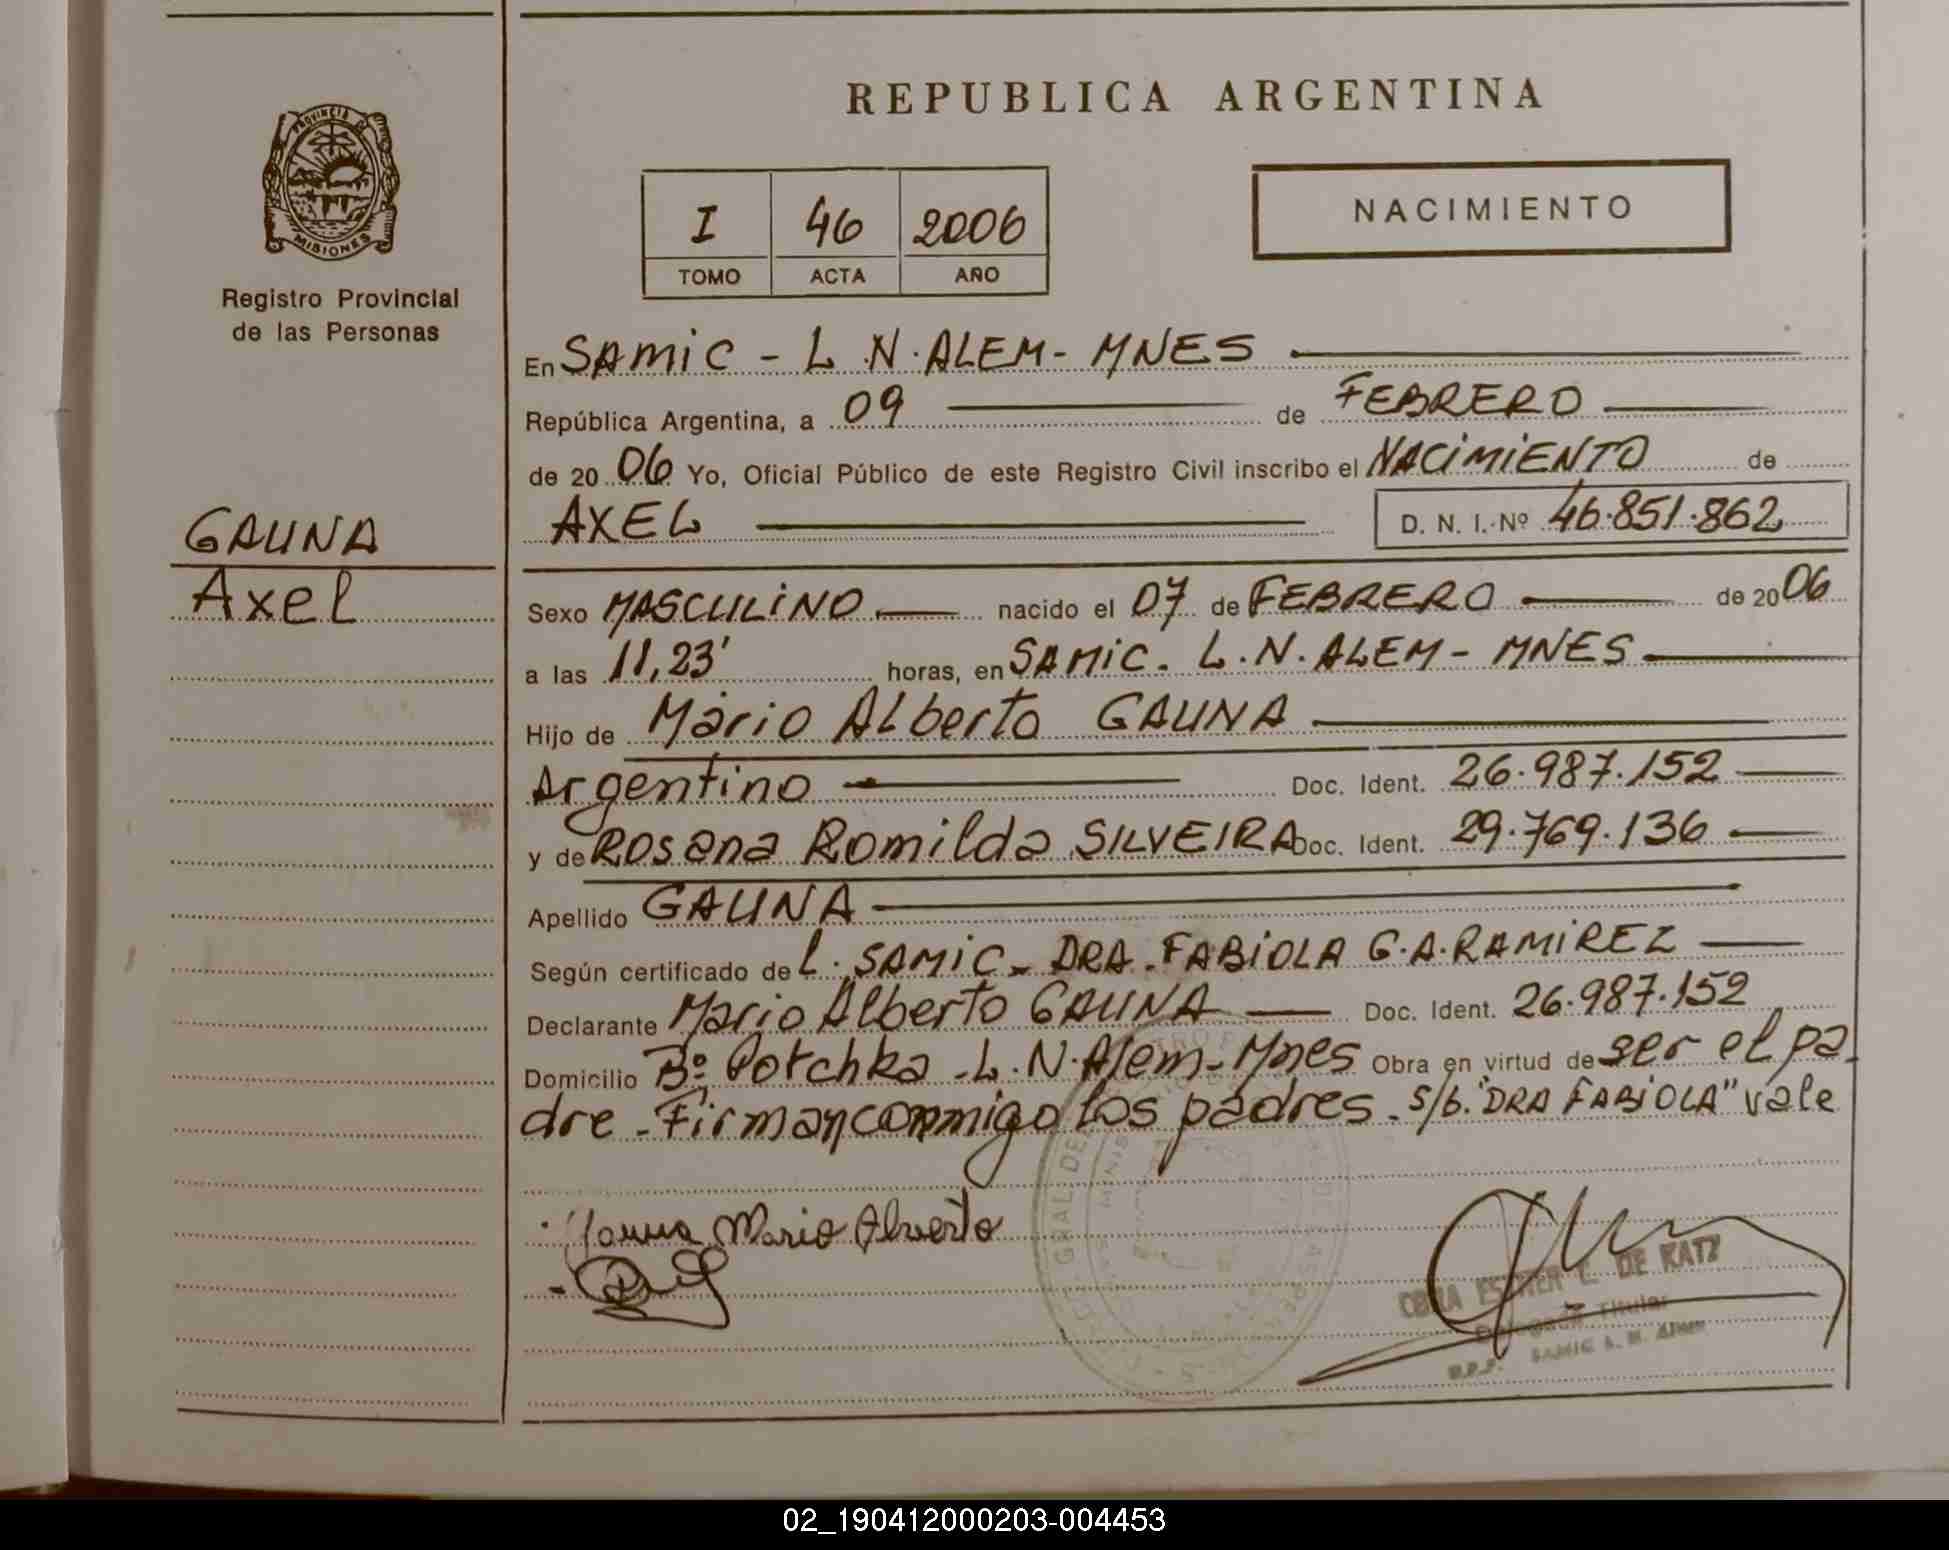 REPUBLICA ARGENTINA
PROVINCIA DE
MISIONES
Registro Provincial
de las Personas
I 46 2006
TOMO ACTA AÑO
NACIMIENTO
En SAMIC - L.N. ALEM - MNES
República Argentina, a 09 de FEBRERO
de 2006 Yo, Oficial Público de este Registro Civil inscribo el NACIMIENTO de
AXEL D. N. I. Nº 46.851.862
GAUNA
Axel
Sexo MASCULINO nacido el 07 de FEBRERO de 2006
a las 11,23' horas, en SAMIC. L.N. ALEM - MNES
Hijo de Mario Alberto GAUNA
Argentino Doc. Ident. 26.987.152
y de Rosana Romilda SILVEIRA Doc. Ident. 29.769.136
Apellido GAUNA
Según certificado de l. SAMIC - DRA. FABIOLA G.A. RAMIREZ
Declarante Mario Alberto GAUNA Doc. Ident. 26.987.152
Domicilio Bº Potchka - L.N. Alem - Mnes Obra en virtud de ser el pa-
dre - Firman conmigo los padres - s/b. "DRA FABIOLA" vale
Gauna Mario Alverto
ESTHER C. DE KATZ
Delegada Titular
R.P.P. SAMIC L. N. Alem
02_190412000203-004453